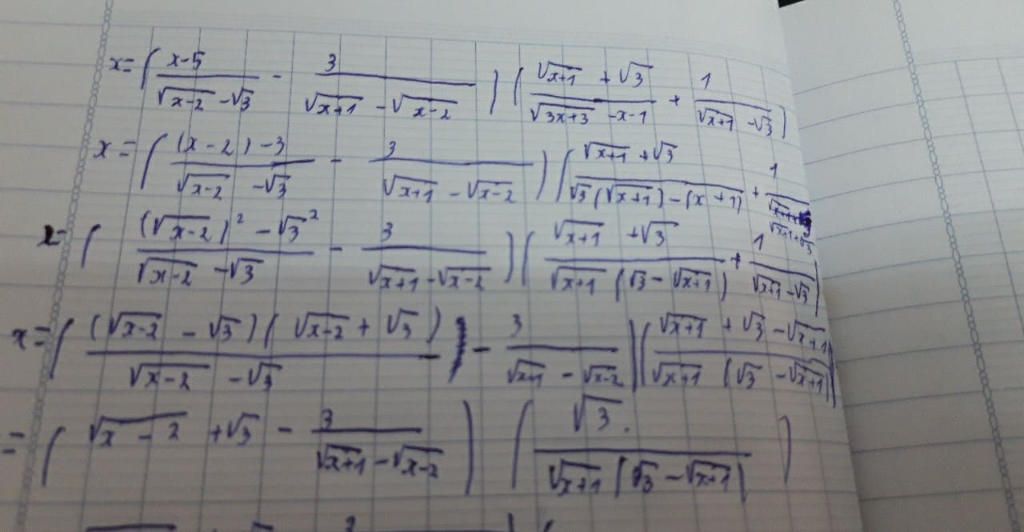 x = ( (x-5)/(√(x-2) - √3) - 3/(√(x+1) - √(x-2)) ) ( (√(x+1) + √3)/(√(3x+3) - x - 1) + 1/(√(x+1) - √3) )
x = ( ((x-2) - 3)/(√(x-2) - √3) - 3/(√(x+1) - √(x-2)) ) ( (√(x+1) + √3)/(√3(√(x+1)) - (x+1)) + 1/
x = ( ((√(x-2))² - √3²)/(√(x-2) - √3) - 3/(√(x+1) - √(x-2)) ) ( (√(x+1) + √3)/(√(x+1) (√3 - √(x+1))) + 1/(√(x+1) - √3) )
x = ( (√(x-2) - √3)(√(x-2) + √3)/(√(x-2) - √3) ) - 3/(√(x+1) - √(x-2)) ) ( (√(x+1) + √3 - √(x+1))/(√(x+1) (√3 - √(x+1)))
= ( √(x-2) + √3 - 3/(√(x+1) - √(x-2)) ) ( √3./(√(x+1) (√3 - √(x+1))) )